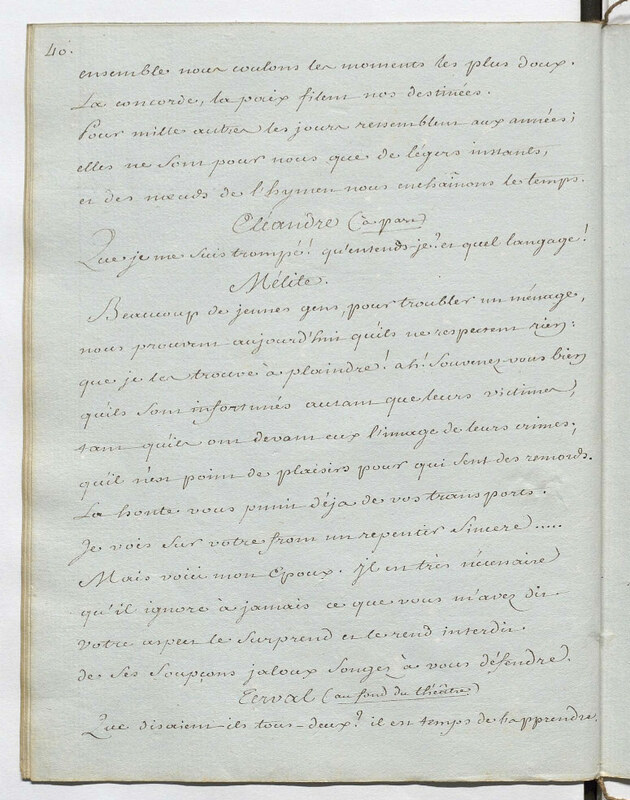 40.
ensemble nous coulons les moments les plus doux.
La concorde, la paix filent nos destinées.
Pour mille autres les jours ressemblent aux années;
elles ne sont pour nous que de légers instants,
et des nœuds de l'hymen nous enchaînons le temps.
Cléandre (à part)
Que je me suis trompé! qu'entends je? et quel langage!
Mélite.
Beaucoup de jeunes gens, pour troubler un ménage,
nous prouvent aujourd'hui qu'ils ne respectent rien:
que je les trouve à plaindre! ah! souvenez vous bien
qu'ils sont infortunés autant que leurs victimes,
tant qu'ils ont devant eux l'image de leurs crimes;
qu'il n'est point de plaisirs pour qui sent des remords.
La honte vous punit déja de vos transports.
Je vois sur votre front un repentir sincere.....
Mais voici mon Epoux. Il est très nécessaire
qu'il ignore à jamais ce que vous m'avez dit
votre aspect le surprend et le rend interdit.
de ses soupçons jaloux songez à vous défendre.
Terval (au fond du théâtre)
Que disaient ils tous-deux? il est temps de l'apprendre.